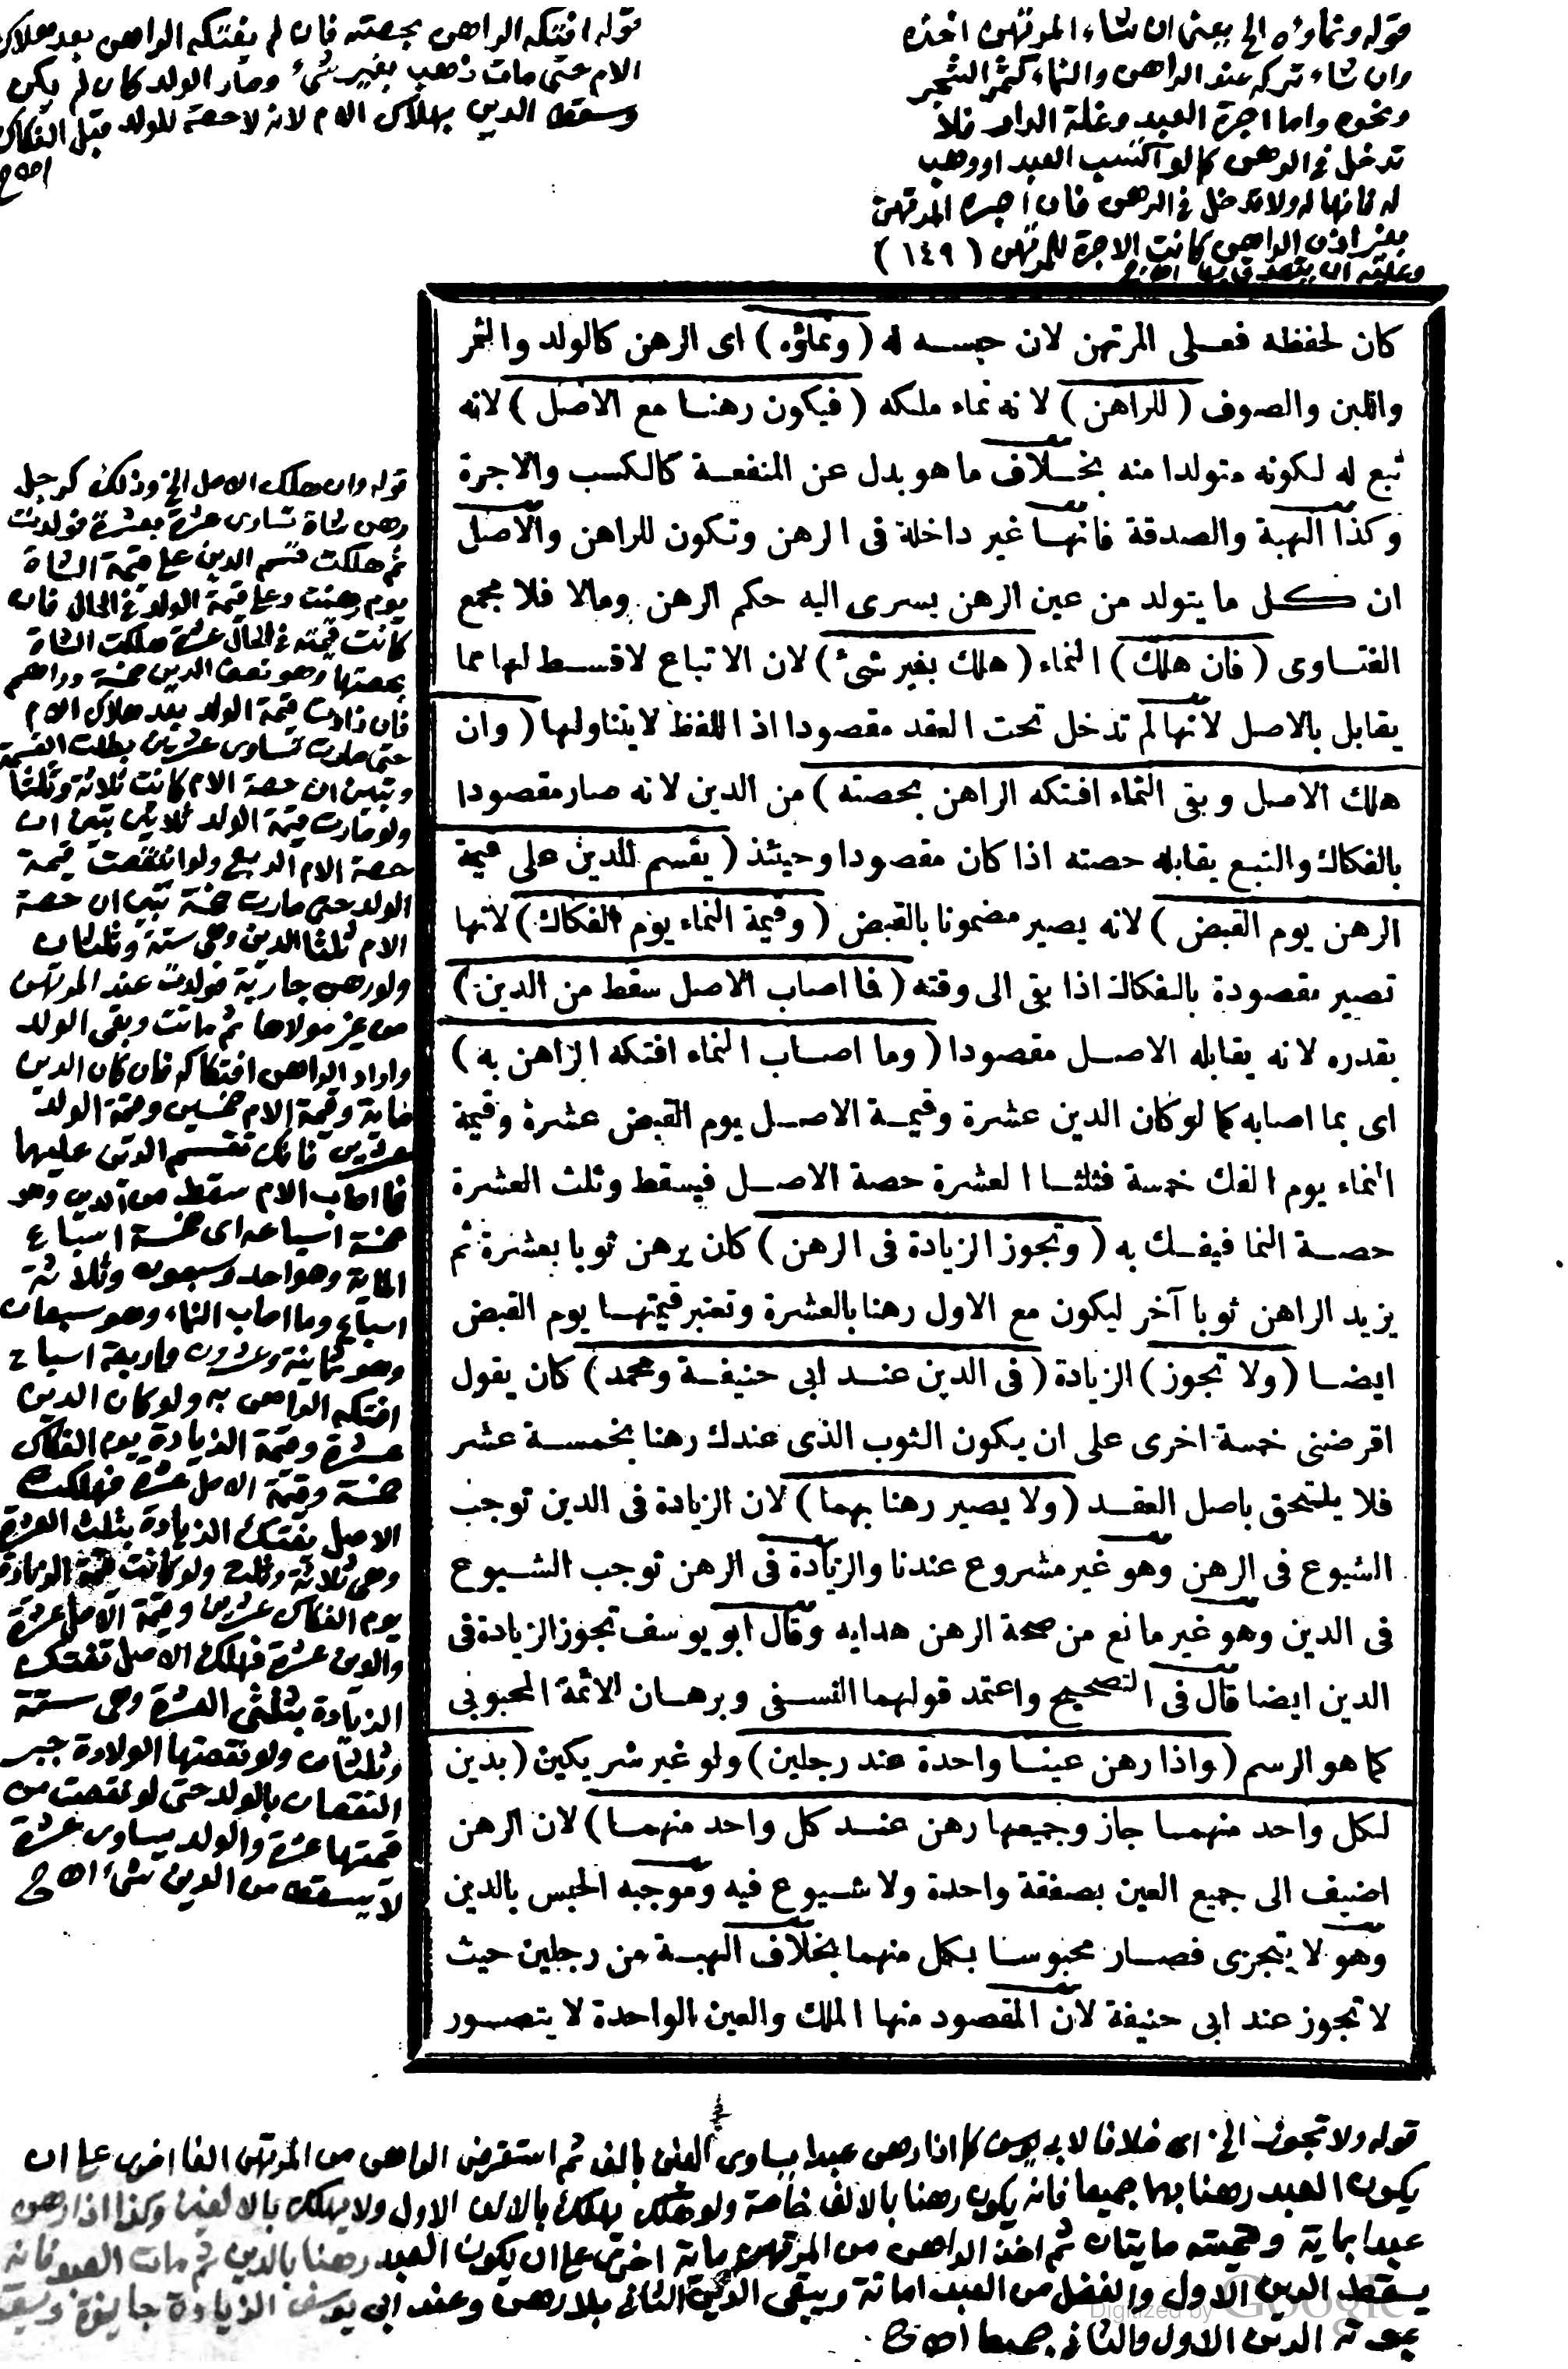 قوله ونماؤه الخ يعنى ان شاء المرتهن اخذه
وان شاء تركه عند الراهن والنماء كثمر الشجر
ونحوه واما اجرة العبد وغلة الدار فلا
تدخل فى الرهن كما لو اكتسب العبد او وهب
له فانها له ولا تدخل فى الرهن فان آجره المرتهن
بغير اذن الراهن كانت الاجرة للمرتهن (١٤٩)
وعليه ان يتصدق بها اه ج
قوله افتكه الراهن بحصته فان لم يفتكه الراهن بعد هلاك
الام حتى مات ذهب بغير شئ وصار الولد كان لم يكن
وسقط الدين بهلاك الام لانه لا حصة للولد قبل الفكاك
اه ج
كان لحفظه فعلى المرتهن لان حبسه له (ونماؤه) اى الرهن كالولد والثمر
واللبن والصوف (للراهن) لانه نماء ملكه (فيكون رهنا مع الاصل) لانه
تبع له لكونه متولدا منه بخلاف ما هو بدل عن المنفعة كالكسب والاجرة
وكذا الهبة والصدقة فانها غير داخلة فى الرهن وتكون للراهن والاصل
ان كل ما يتولد من عين الرهن يسرى اليه حكم الرهن ومالا فلا مجمع
الفتاوى (فان هلك) النماء (هلك بغير شئ) لان الاتباع لاقسط لها مما
يقابل بالاصل لانها لم تدخل تحت العقد مقصودا اذ اللفظ لايتناولها (وان
هلك الاصل وبقى النماء افتكه الراهن بحصته) من الدين لانه صار مقصودا
بالفكاك والتبع يقابله حصته اذا كان مقصودا وحينئذ (يقسم للدين على قيمة
الرهن يوم القبض) لانه يصير مضمونا بالقبض (وقيمة النماء يوم الفكاك) لانها
تصير مقصودة بالفكاك اذا بقى الى وقته (فما اصاب الاصل سقط من الدين)
بقدره لانه يقابله الاصل مقصودا (وما اصاب النماء افتكه الراهن به)
اى بما اصابه كما لو كان الدين عشرة وقيمة الاصل يوم القبض عشرة وقيمة
النماء يوم الفك خمسة فثلثا العشرة حصة الاصل فيسقط وثلث العشرة
حصة النما فيفك به (وتجوز الزيادة فى الرهن) كان يرهن ثوبا بعشرة ثم
يزيد الراهن ثوبا آخر ليكون مع الاول رهنا بالعشرة وتعتبر قيمتها يوم القبض
ايضا (ولا تجوز) الزيادة (فى الدين عند ابى حنيفة ومحمد) كان يقول
اقرضنى خمسة اخرى على ان يكون الثوب الذى عندك رهنا بخمسة عشر
فلا يلتحق باصل العقد (ولا يصير رهنا بهما) لان الزيادة فى الدين توجب
الشيوع فى الرهن وهو غير مشروع عندنا والزيادة فى الرهن توجب الشيوع
فى الدين وهو غير مانع من صحة الرهن هدايه وقال ابو يوسف تجوز الزيادة فى
الدين ايضا قال فى التصحيح واعتمد قولهما النسفى وبرهان الائمة المحبوبى
كما هو الرسم (واذا رهن عينا واحدة عند رجلين) ولو غير شريكين (بدين
لكل واحد منهما جاز وجميعها رهن عند كل واحد منهما) لان الرهن
اضيف الى جميع العين بصفقة واحدة ولا شيوع فيه وموجبه الحبس بالدين
وهو لا يتجزى فصار محبوسا بكل منهما بخلاف الهبة من رجلين حيث
لا تجوز عند ابى حنيفة لان المقصود منها الملك والعين الواحدة لا يتصور
قوله وان هلك الاصل الخ وذلك كرجل
رهن شاة تساوى عشرة بعشرة فولدت
ثم هلكت قسم الدين على قيمة الشاة
يوم رهنت وعلى قيمة الولد فى الحال فان
كانت قيمته فى الحال عشرة هلكت الشاة
بحصتها وهو نصف الدين خمسة دراهم
فان زادت قيمة الولد بعد هلاك الام
حتى صارت تساوى عشرين بطلت القسمة
وتبين ان حصة الام كانت ثلاثة وثلثا
ولو صارت قيمة الولد ثلاثين تبين ان
حصة الام الربع ولو انتقصت قيمة
الولد حتى صارت خمسة تبين ان حصة
الام ثلثا الدين وهى ستة وثلثان
ولو رهن جارية فولدت عند المرتهن
من غير مولاها ثم ماتت وبقى الولد
واراد الراهن افتكاكه فان كان الدين
مائة وقيمة الام خمسين وقيمة الولد
عشرين فانك تقسم الدين عليهما
فما اصاب الام سقط من الدين وهو
خمسة اسباعه اى خمسة اسباع
المائة وهو احد وسبعون وثلاثة
اسباع وما اصاب النماء وهو سبعان
وهو ثمانية وعشرون واربعة اسباع
افتكه الراهن به ولو كان الدين
عشرة وقيمة الزيادة يوم الفكاك
خمسة وقيمة الاصل عشرة فهلكت
الاصل يفتك الزيادة بثلث العشرة
وهى ثلاثة وثلث ولو كانت قيمة الزيادة
يوم الفكاك عشرين وقيمة الاصل عشرة
والدين عشرة فهلك الاصل تفتك
الزيادة بثلثى العشرة وهى ستة
وثلثان ولو نقصتها الولادة جبر
النقصان بالولد حتى لو نقصت من
قيمتها عشرة والولد يساوى عشرة
لا يسقط من الدين شئ اه ج
قوله ولا تجوز الخ اى خلافا لابى يوسف كما اذا رهن عبدا يساوى الفين بالف ثم استقرض الراهن من المرتهن الفا اخرى على ان
يكون العبد رهنا بهما جميعا فانه يكون رهنا بالالف خاصة ولو هلك يهلك بالالف الاول ولا يهلك بالالفين وكذا اذا رهن
عبدا بماية وقيمته مايتان ثم اخذ الراهن من المرتهن ماية اخرى على ان يكون العبد رهنا بالدين ثم مات العبد فانه
يسقط الدين الاول والفضل من العبد امانة ويبقى الدين الثانى بلا رهن وعند ابى يوسف الزيادة جايزة
الدين الاول والثانى جميعا اه ج
Digitized by Google